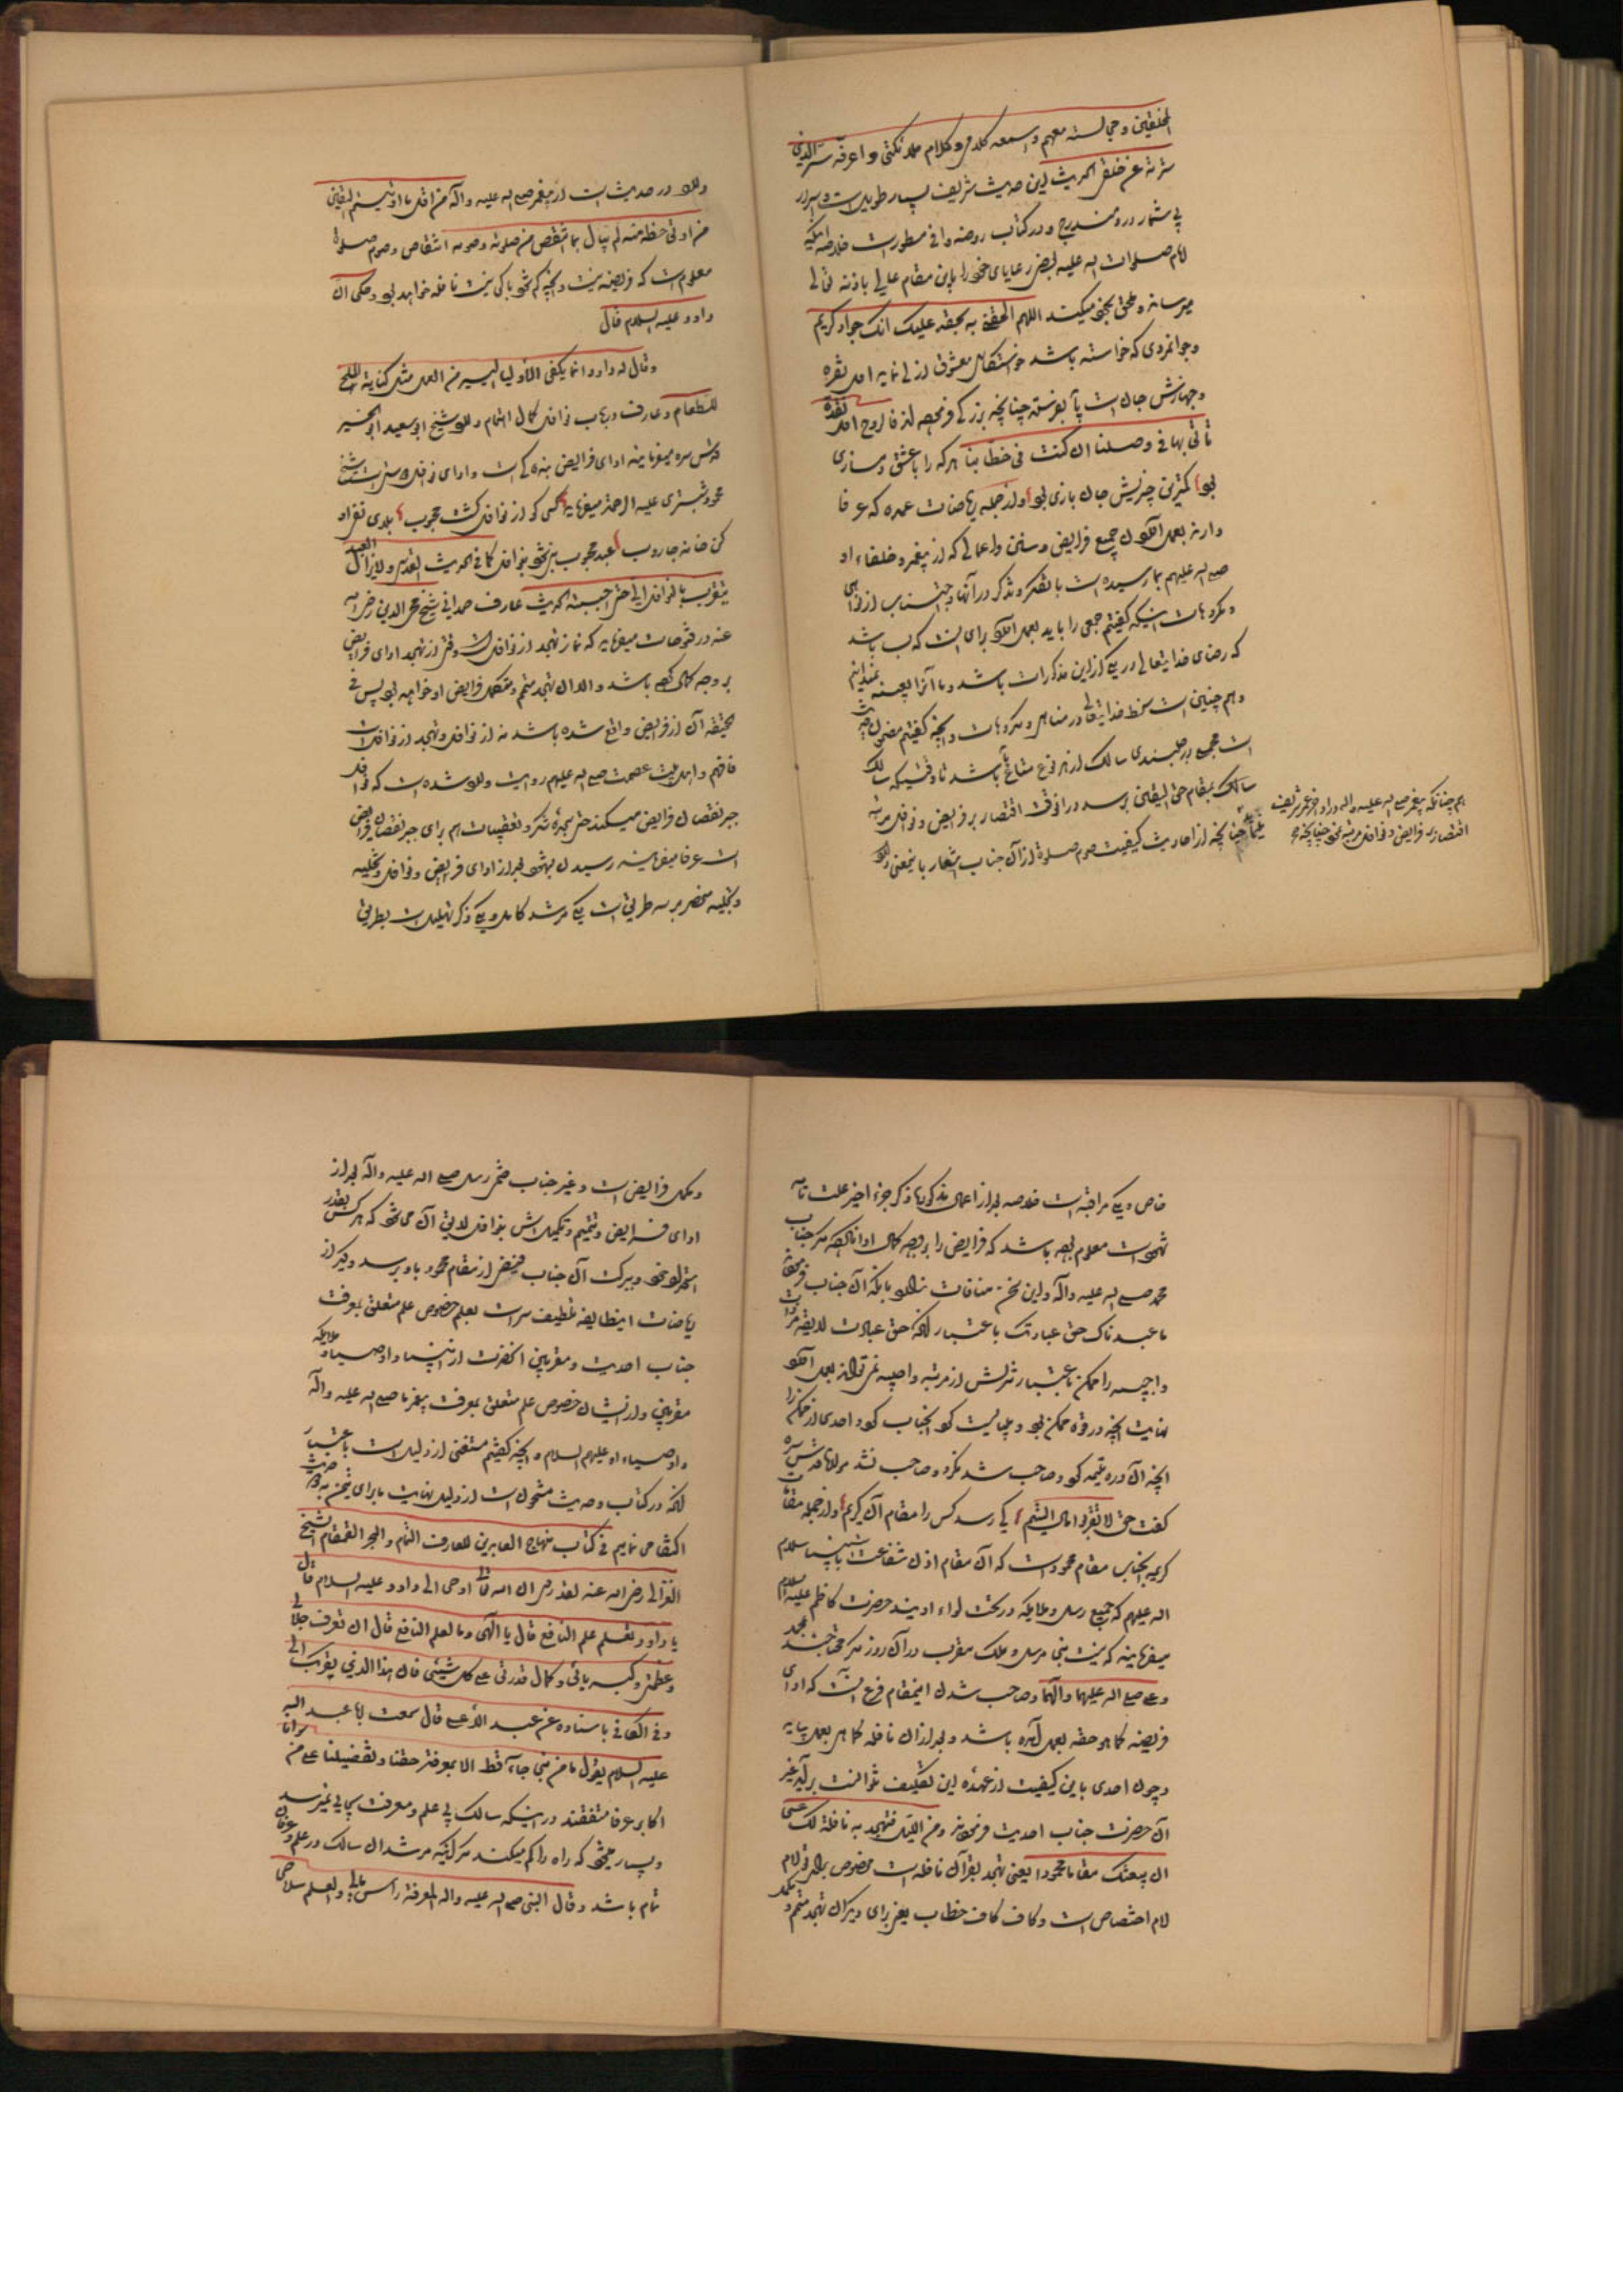 المخلقین و مجالسته معهم و اسمعه کلامی و کلام ملائکتی و اعرفه سر الذی
سترته عن خلقی الحدیث این حدیث شریف بسیار طویل است و اسرار
بی شمار درو مندرج و در کتاب روضه وافی مسطور است خلاصه اینکه
امام صلوات اله علیه بعض رعایای خود را باین مقام عالی باذنه تعالی
میرساند و ملحق بخود میکند اللهم الحقنی به بحقه علیک انک جواد کریم
و جوانمردی که خواسته باشد معشوق ازلی نماید اول نقره
و جهازش جان است باید بفرستد چنانچه بزرگی فرموده
تأتی بها فی وصلنا ان کنت فی خطابنا هر که را با عشق دمسازی
بود کمترین چیزیش جان بازی بود و از جمله ریاضات عمده که عرفا
دارند بعمل آوردن جمیع فرایض و سنن و اعمالی که از پیغمبر و خلفاء او
صلی اله علیهم بما رسیده است با تفکر و تذکر در آنها و اجتناب از نواهی
و مکروهات اینکه گفتیم جمعی را باید بعمل آورد برای اینست که بسا باشد
که رضای خدایتعالی در یکی از این مذکورات باشد و ما آنرا بعینه ندانیم
و هم چنین است سخط خدایتعالی در مناهی و مکروهات و اینچه گفتیم مضمون حدیث
است سالک از هر نوع باشد تا وقتیکه سالک
سالک بمقام حق الیقین برسد در آنوقت اقتصار بر فرایض و نوافل مرتبه
چنانچه از احادیث کیفیت صوم صلوة از آن جناب اشعار باینمعنی دارد
هم چنانکه پیغمبر صلی اله علیه و اله در اواخر عمر شریف
اقتصار بر فرایض و نوافل مرتبه نمود چنانچه
وارد در حدیث است از پیغمبر صلی اله علیه و آله من اقل ما اوتیتم الیقین
من اوتی حظه منه لم یبال بما انتقص من صلوته و صومه انتقاص و صوم صلوة
معلوم است که فریضه نیست و اینچه کم شود باکی نیست نافله خواهد بود و حکی ان
داود علیه السلام قال
و قال له داود انما یکفی الاولیا الیسیر من العمل مثل کفایة الملح
للطعام و عارف در باب نوافل کمال اهتمام دارد شیخ ابو سعید ابو الخیر
قدس سره میفرماید ادای فرایض بندگی است و ادای نوافل شیخ
محمود شبستری علیه الرحمة میفرماید کسی کو از نوافل گشت محبوب بلای نفی او
کن خانه جاروب عبد محبوب نیز نشود بنوافل کما فی الحدیث القدسی و لا یزال العبد
یتقرب بالنوافل الی حتی احببته الحدیث عارف صمدانی شیخ محی الدین رضی اله
عنه در فتوحات میفرماید که نماز تهجد از نوافل است وقتی از تهجد ادای فرایض
بر وجه کمال کرده باشد و الا آن تهجد متمم و مکمل فرایض او خواهد بود پس فی
الحقیقه آن از فرایض واقع شده باشد نه از نوافل و تهجد از نوافل است
فافهم و اهل بیت عصمت صلی اله علیهم روایت وارد شده است که نوافل
جبر نقصان فرایض میکند حتی سجده شکر و تعقیبات هم برای جبر نقصان فرایض
است عرفا میفرمایند رسیدن بشهود بعد از ادای فریض و نوافل و تخلیه
و تجلیه منحصر بر سه طریق است یکی مرشد کامل و یکی ذکر تهلیل است بطریق
خاص و یکی مراقبه است خلاصه بعد از اعمال مذکوره ذکر جزء اخیر علت تامه
شهود است معلوم بوده باشد که فرایض را بوجه کمال ادا نکرده مگر جناب
محمد صلی اله علیه و آله و این سخن منافات ندارد بانکه آن جناب فرموده
ما عبدناک حق عبادتک باعتبار آنکه حق عبادت لایقه مرتبه
واجبیه را ممکن باعتبار تنزلش از مرتبه واجبیه نمی تواند بعمل آورد
نهایت اینچه در قوه ممکن بود و میبایست کرد اینجناب کرد و احدی از ممکن را
اینچه آن درة یتیمه کرد و صاحب شد نکرد و صاحب نشد مولانا قدس سره
گفت حق لا تقربوا مال الیتیم کی رسد کس را مقام آن کریم و از جمله مقامات
کریمه اینجناب مقام محمود است که آن مقام اذن شفاعت است بانبیا سلام
اله علیهم که جمیع رسل و ملایکه در تحت لواء اویند حضرت کاظم علیه السلام
میفرمایند که نیست نبی مرسل و ملک مقرب در آن روز مگر محتاجند بمحمد
و علی صلی اله علیهما و الهما و صاحب شدن اینمقام فرع اینست که ادای
فریضه کما هو حقه بعمل آمده باشد و بعد از آن نافله کما هی بعمل بیاید
و چون احدی باین کیفیت از عهده این تکلیف نتوانست برآید غیر
آن حضرت جناب احدیت فرموده و من اللیل فتهجد به نافلة لک عسی
ان یبعثک مقاما محمودا یعنی تهجد بقرآن نافله است مخصوص برای تو لام
لام اختصاص است و کاف کاف خطاب یعنی برای دیگران تهجد متمم و
مکمل فرایض است و غیر جناب ختمی رسل صلی اله علیه و آله بعد از
ادای فرایض و تتمیم و تکمیلش بنوافل لایق آن می شود که هر کس بقدر
استعداد خود ببرکت آن جناب فیضی از مقام محمود باو برسد و دیگر از
ریاضات اینطایفه تلطیف سر است بعلم خصوص علم متعلق بمعرفت
جناب احدیت و مقربین آنحضرت از انبیا و اوصیا و ملایکه
مقربین و از ایشان خصوص علم متعلق بمعرفت پیغمبر ما صلی اله علیه و آله
و اوصیاء او علیهم السلام و اینچه گفتیم مستغنی از دلیل است باعتبار
آنکه در کتاب و حدیث مشحون است از دلیل نهایت ما برای تیمن به
اکتفا می نمایم فی کتاب منهاج العابدین للعارف التمام و البحر القمقام الشیخ
الغزالی رضی اله عنه لقد روی ان اله تعالی اوحی الی داود علیه السلام قال
یا داود تعلم علم النافع قال یا الهی و ما العلم النافع قال ان تعرف جلالی
و عظمتی و کبریائی و کمال قدرتی علی کل شیئی فان هذا الذی یقربک الی
و فی الکافی باسناده عن عبد الاعلی قال سمعت ابا عبد اله
علیه السلام یقول ما من نبی جاء قط الا بمعرفة حقنا و تفضیلنا علی من سوانا
اکابر عرفا متفقند در اینکه سالک بی علم و معرفت بجایی نمیرسد
و بسیار میشود که راه را گم میکند مگر اینکه مرشد آن سالک در علم و عرفان
تام باشد و قال النبی صلی اله علیه و اله المعرفة راس مالی و العلم سلاحی